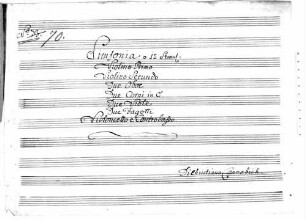 70.
Sinfonia a 12 Strom:
Violino Primo
Violino Secundo
Due Oboe
Due Corni in C
Due Viole
Due Fagotti
Violoncello e Contrabasso
Cannabich